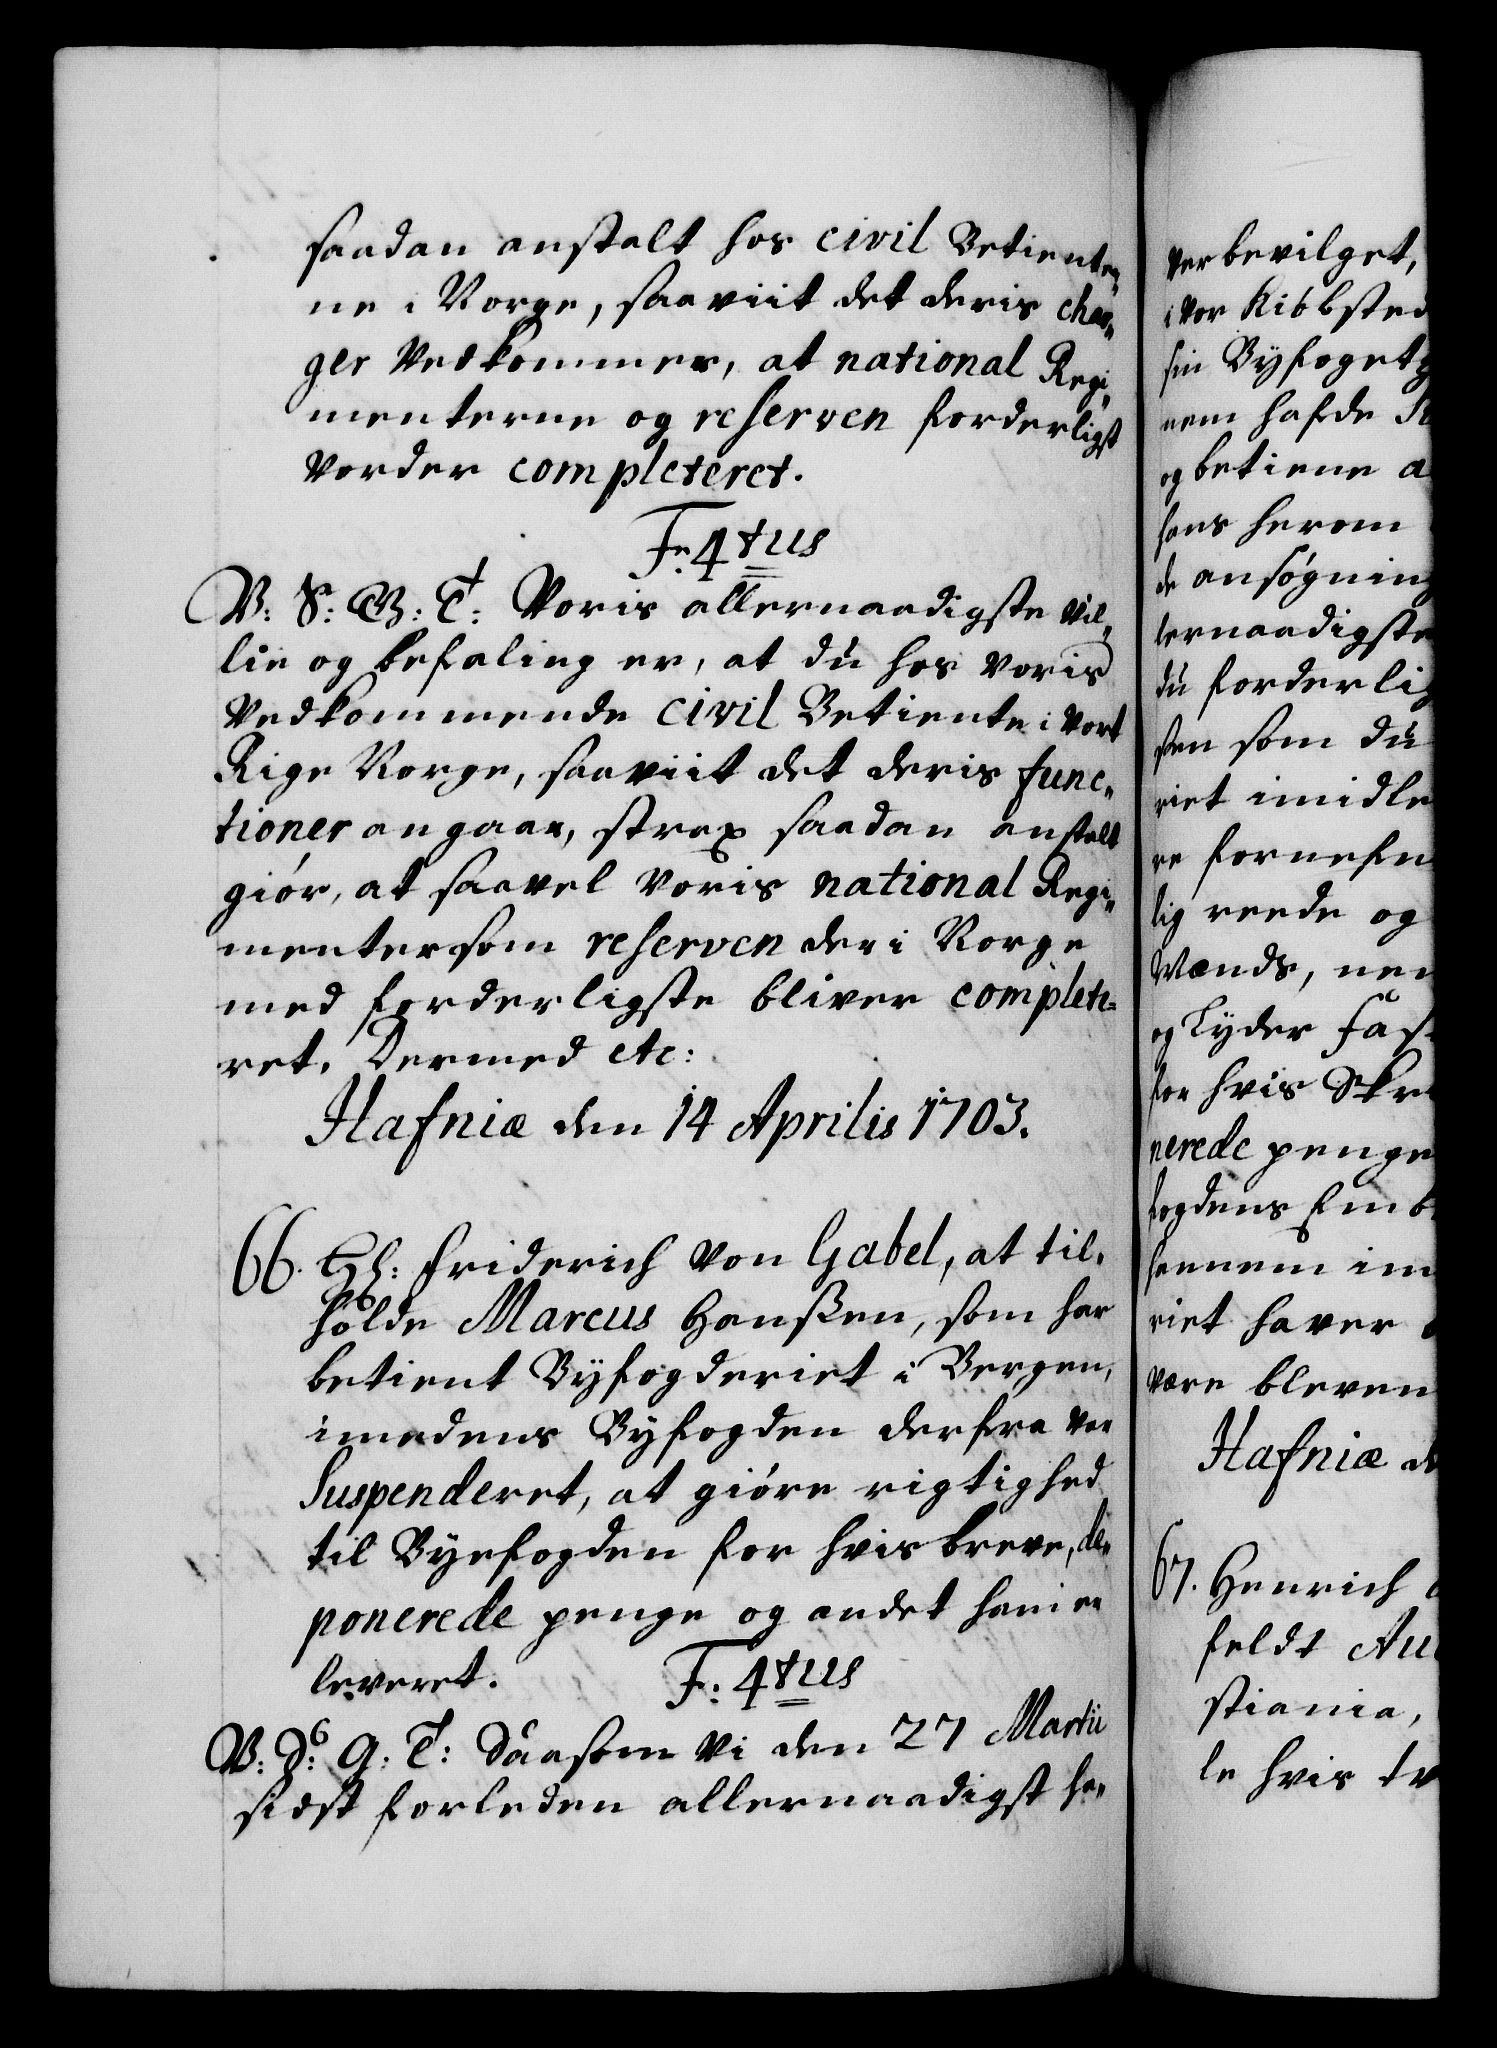 saadan anstalt hos civil Betiente„
ne i Norge, saaviit det deris char„
ger vedkommer, at national Regi„
menterne og reserven forderligst
vorder completeret.
Fr. 4tus
V: S: G: T: Voris allernaadigste vil„
lie og befaling er, at du hos voris
vedkommende civil Betiente i vort
Rige Norge, saaviit det deris func„
tioner angaar, strax saadan anstalt
giör, at saavel voris national Regi„
menter som reserven der i Norge
med forderligste bliver complete=
ret. Dermed etc:
Hafniæ den 14 Aprilis 1703.
66. Hl: Friderich von Gabel, at til„
holde Marcus Hanßen, som har
betient Byfogderiet i Bergen,
imedens Byfogden derfra var
Suspenderet, at giöre rigtighed
til Byefogden for hvis breve, de„
ponerede penge og andet ham er
leveret.
F: 4tus
V: S: G: T: Saasom vi den 27 Martii
sidst forleden allernaadigst ha„
ver bevilget,
i vor Kiöbsted
sin Byfoget
nem hafde
og betiene
hans herom
de ansøgning
lernaadigste
du forderlig
sten som du
riet imidle
re fornefn
lig rede og
vænds, nem
og Tyder
for hvis Skr
nerede penge
fogdens Emb
hannem im
riet haver
være bleven
Hafniæ de
67. Henrich
feldt Au
stiania,
le hvis tv